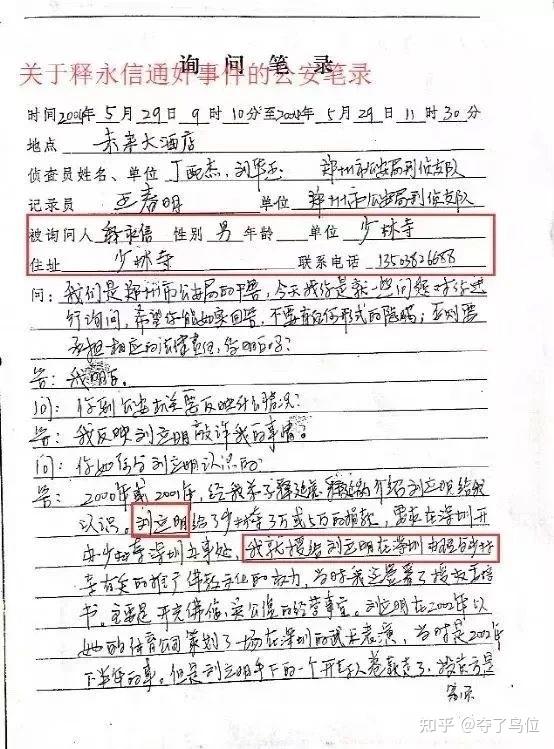 询问笔录
关于释永信通奸事件的公安笔录
时间2004年5月29日9时10分至2004年5月29日11时30分
地点 未来大酒店
侦查员姓名、单位 丁 杰、刘华 郑州市公安局刑侦支队
记录员 王春明 单位 郑州市公安局刑侦支队
被询问人 释永信 性别 男 年龄 单位 少林寺
住址 少林寺 联系电话
问:我们是郑州市公安局的干警,今天我们是就一些问题对你进
行询问,希望你能如实回答,不要有任何形式的隐瞒;否则要
承担相应的法律责任,你明白吗?
答:我明白。
问:你到公安机关要反映什么情况?
答:我反映刘立明敲诈我的事情。
问:你如何与刘立明认识的
答:2000年或2001年,经我弟子释延 介绍刘立明给我
认识。刘立明给了少林寺3万或5万的捐款,要求在深圳开
办少林寺深圳办事处,我就授给刘立明在深圳 少林
寺有关的推广佛教文化的权力,当时我还签署了授权委托
书。主要是开光佛像、 的经营事宜。刘立明在2002年以
她的体育公司策划了一场在深圳的武术表演,当时是2002年
下半年的事。但是刘立明手下的一个 人卷款走了,投资方是
知乎 @夺了鸟位